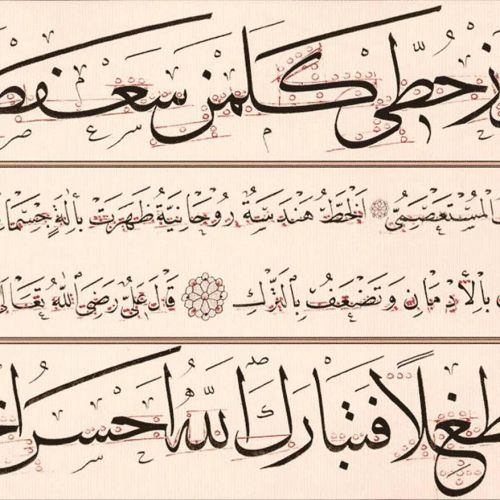 حُطِّي كَلَمَنْ سَعَفَصْ
المُسْتَعْصِمِيُّ الْخَطُّ هَنْدَسَةٌ رُوحَانِيَّةٌ ظَهَرَتْ بِأٰلَةٍ
بِالْأَدْمَانِ وَتَضْعَفُ بِالتَّرْكِ قَالَ عَلِيٌّ رَضِيَ اللهُ تَعَالٰى
فَتَبَارَكَ اللهُ احسن